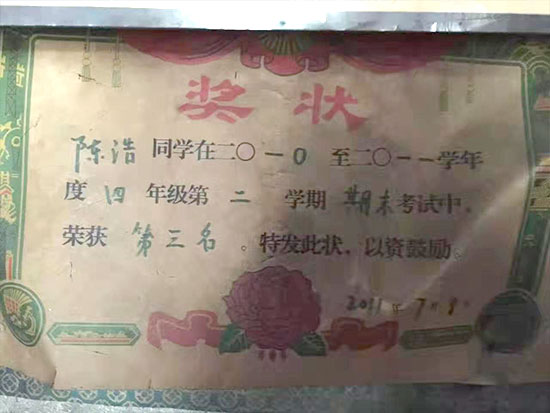 奖状
陈浩 同学在二〇一〇 至二〇一一学年
度 四 年级第 二 学期 期末 考试中,
荣获 第三名 。特发此状、以资鼓励。
2011年7月8日